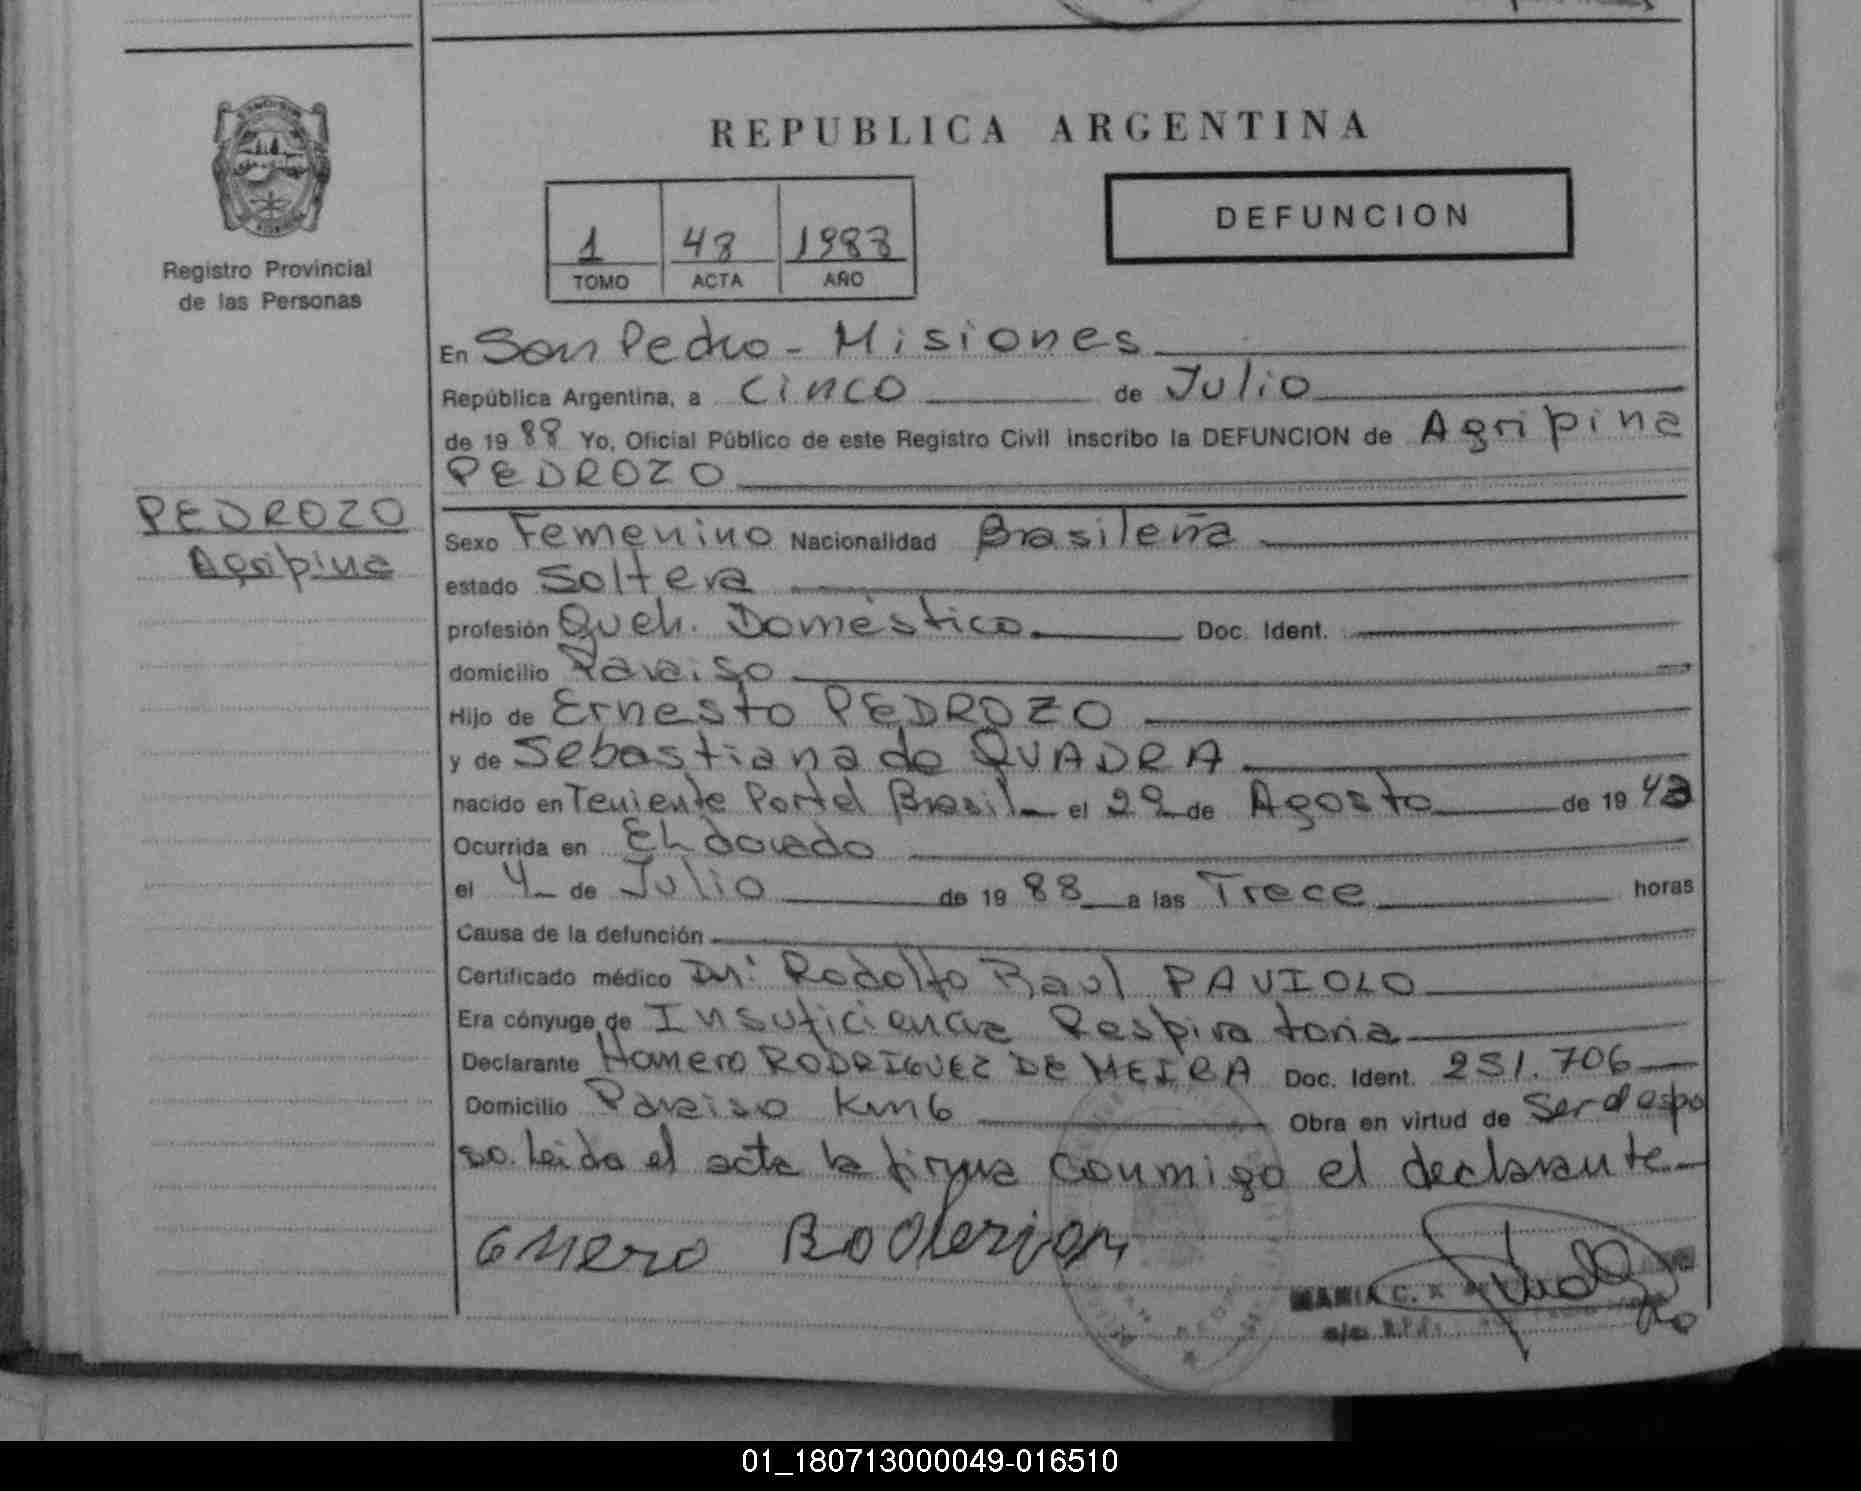 REPUBLICA ARGENTINA
DEFUNCION
1 48 1988
TOMO ACTA AÑO
Registro Provincial
de las Personas
En San Pedro - Misiones
República Argentina, a cinco de Julio
de 1988 Yo, Oficial Público de este Registro Civil inscribo la DEFUNCION de Agripina
PEDROZO
PEDROZO
Agripina
Sexo Femenino Nacionalidad Brasileña
estado Soltera
profesión Queh. Doméstico Doc. Ident.
domicilio Paraiso
Hijo de Ernesto PEDROZO
y de Sebastiana de QUADRA
nacido en Teniente Portel Brasil el 29 de Agosto de 1943
Ocurrida en ELdorado
el 4 de Julio de 1988 a las Trece horas
Causa de la defunción
Certificado médico Dr: Rodolfo Raul PAVIOLO
Era cónyuge de Insuficiencia Respiratoria
Declarante Homero RODRIGUEZ DE MEIRA Doc. Ident. 251.706
Domicilio Paraiso Km 6 Obra en virtud de Ser el espo
so. Leida el acta la firma conmigo el declarante
MARIA C.
01_180713000049-016510